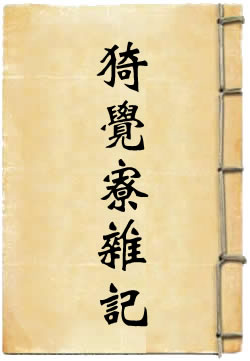 猗覺寮雜記